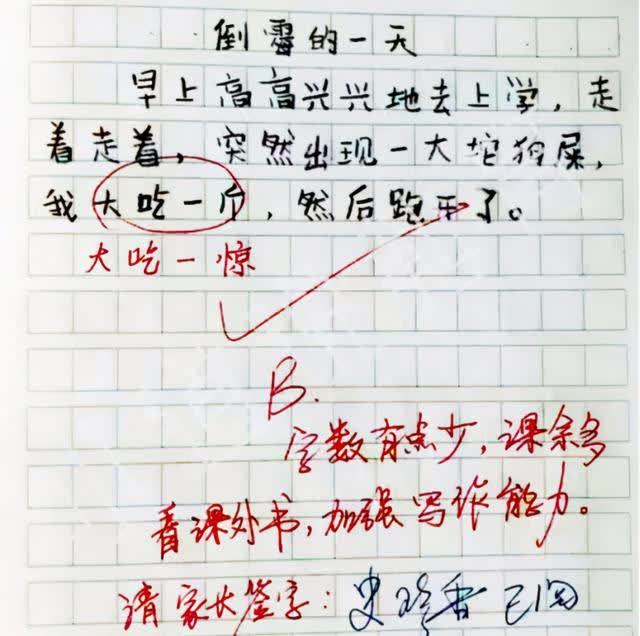 倒霉的一天
早上高高兴兴地去上学,走
着走着,突然出现一大坨狗屎,
我大吃一斤,然后跑开了。
大吃一惊
B.
字数有点少,课余多
看课外书,加强写作能力。
请家长签字:史珍香 已阅